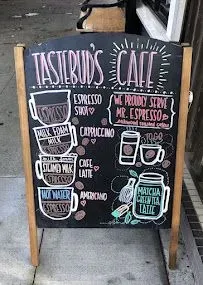 TASTEBUD'S CAFE
ESPRESSO
ESPRESSO
SHOT
WE PROUDLY SERVE
MR. ESPRESSO
MILK FOAM
MILK
ESPRESSO
CAPPUCCINO
STEAMED MILK
ESPRESSO
CAFE
LATTE
HOT WATER
ESPRESSO
AMERICANO
MATCHA
GREEN TEA
LATTE